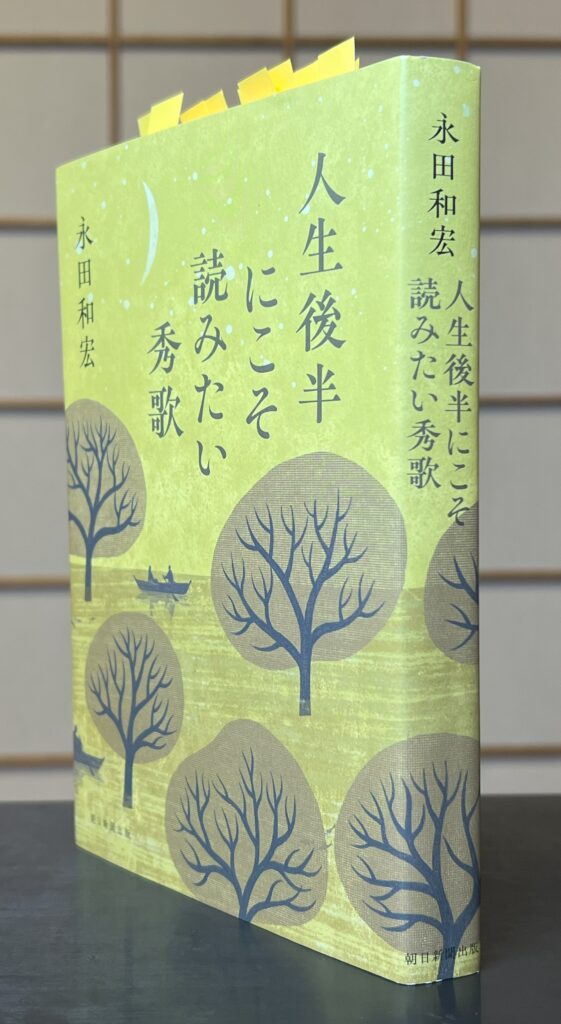 人生後半
にこそ
読みたい
秀歌
永田和宏
朝日新聞出版
永田和宏
人生後半にこそ
読みたい秀歌
朝日新聞出版